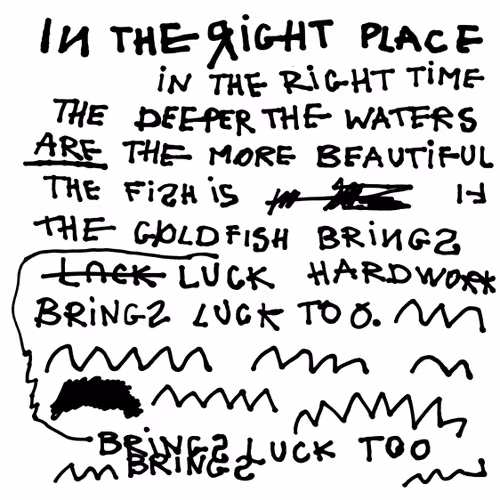 IN THE RIGHT PLACE
IN THE RiGHT TiME
THE DEEPER THE WATERS
ARE THE MORE BEAUTiFUL
THE FiSH iS
THE GOLDFISH BRINGS
LUCK HARDWORK
BRiNGS LUCK TOO.
BRiNGS LUCK TOO
BRINGS